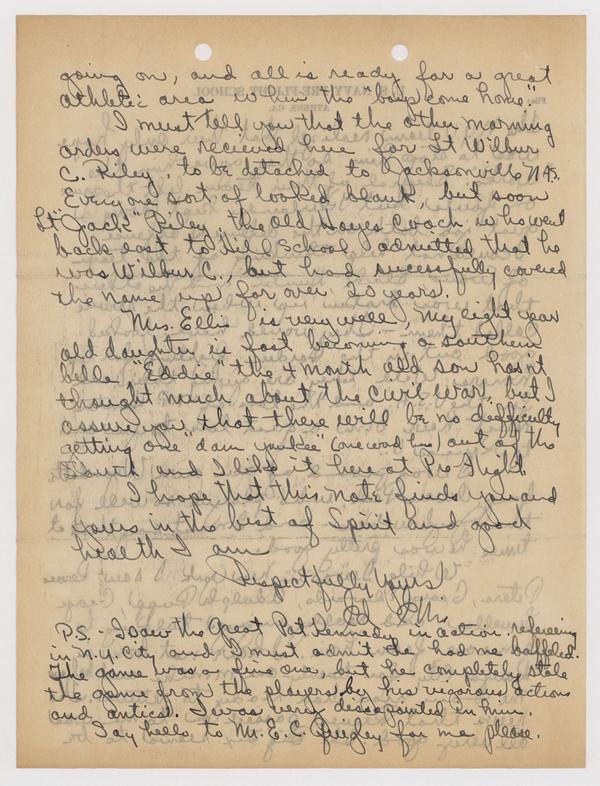 going on, and all is ready for a great
athletic area when the "boys come home."
I must tell you that the other morning
orders were recieved here for Lt Wilbur
C. Riley, to be detached to Jacksonville
Everyone sort of looked blank, but soon
Lt "Jack" Riley, the old Hayes Coach who went
back east to Hill School admitted that he
was Wilbur C., but had sucessfully covered
the name up for over 20 years.
Mrs. Ellis is very well, My eight year
old daughter is fast becoming a southern
belle. "Eddie" the 4 month old son hasn't
thought much about the Civil War, but I
assure you, that there will be no difficulty
getting one "dam yankee" (one word hrs) out of the
South and I like it here at Pre-Flight.
I hope that this note finds you and
yours in the best of Spirit and good
health I am
Respectfully Yours,
P.S.- I saw the Great Pat Kennedy in action refereeing
in N.Y. City and I must admit he had me baffled.
The game was a fine one, but he completely stole
the game from the players, by his vigorous actions
and antics. I was very dissapointed in him.
Say hello to Mr. E.C. Quigley for me please.